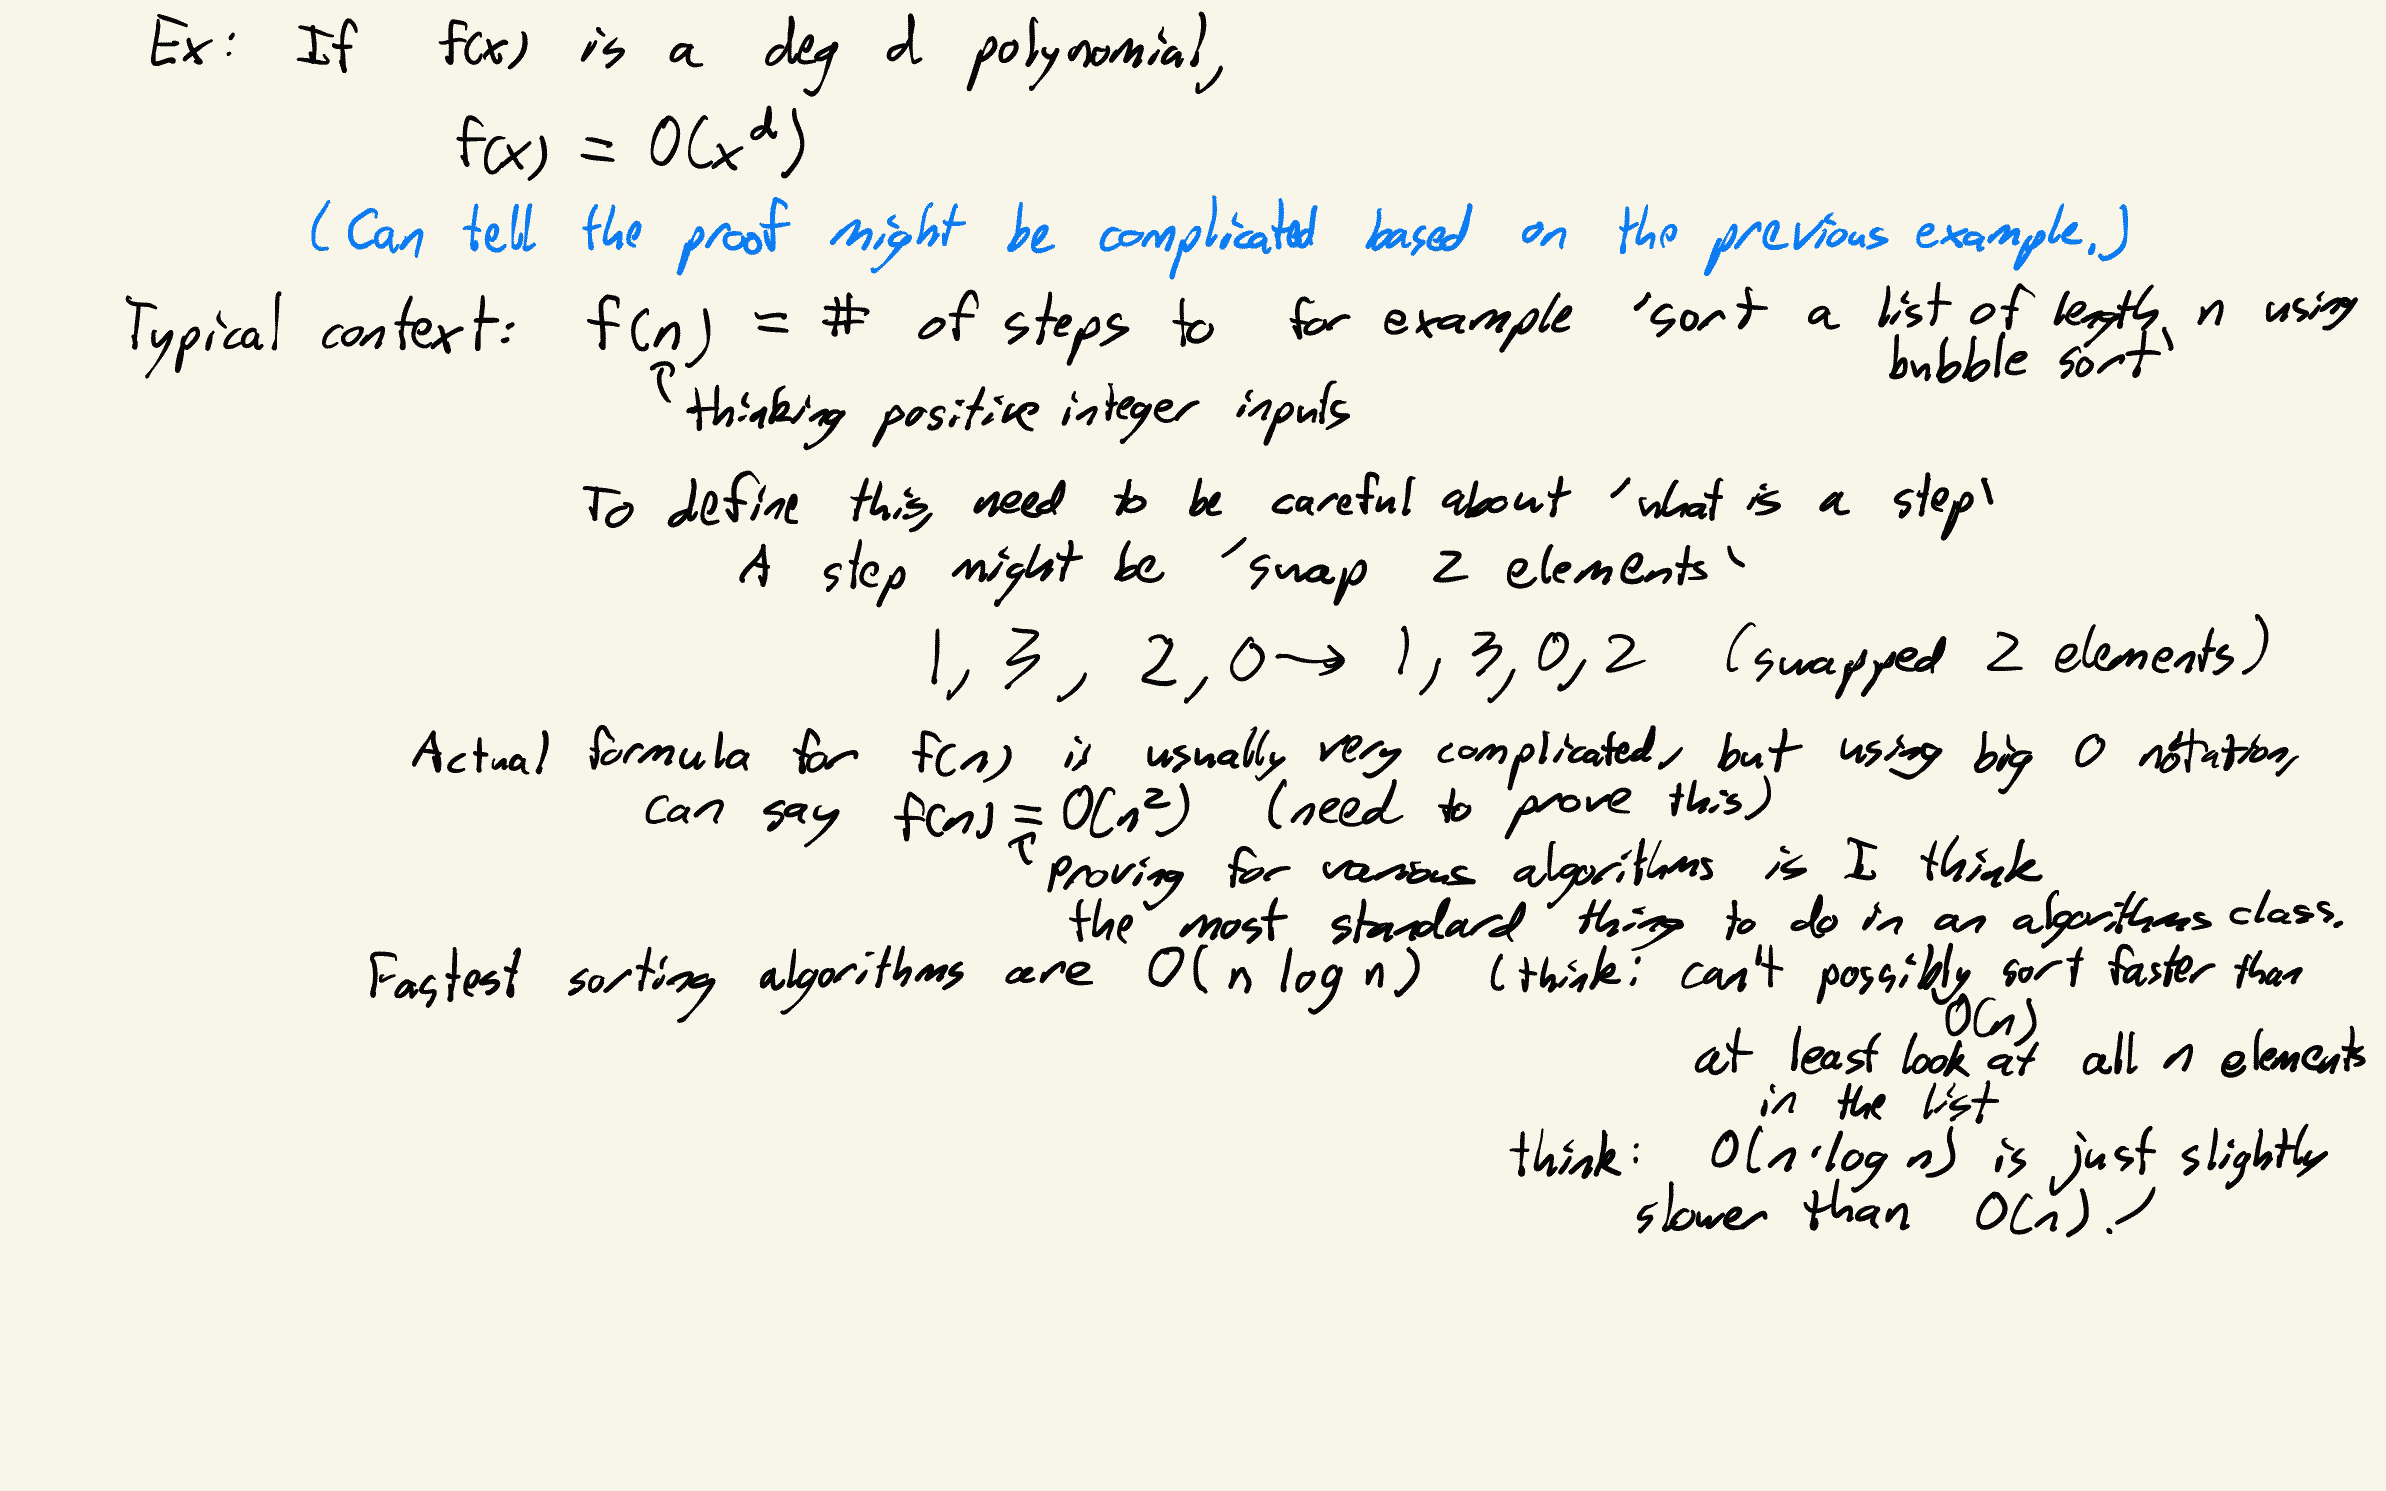 Ex: If f(x) is a deg d polynomial,
f(x) = O(x^d)
(Can tell the proof might be complicated based on the previous example.)
Typical context: f(n) = # of steps to for example 'sort a list of length n using
bubble sort'
thinking positive integer inputs
To define this, need to be careful about 'what is a step'
A step might be 'swap 2 elements'
1, 3, 2, 0 → 1, 3, 0, 2 (swapped 2 elements)
Actual formula for f(n) is usually very complicated, but using big O notation,
can say f(n) = O(n²) (need to prove this)
proving for various algorithms is I think
the most standard thing to do in an algorithms class.
Fastest sorting algorithms are O(n log n) (think: can't possibly sort faster than
O(n)
at least look at all n elements
in the list
think: O(n·log n) is just slightly
slower than O(n).)